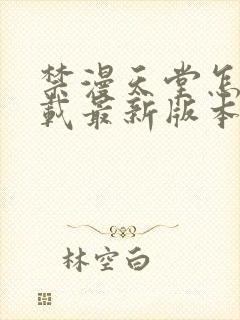 禁漫天堂怎
载最新版本
林空白